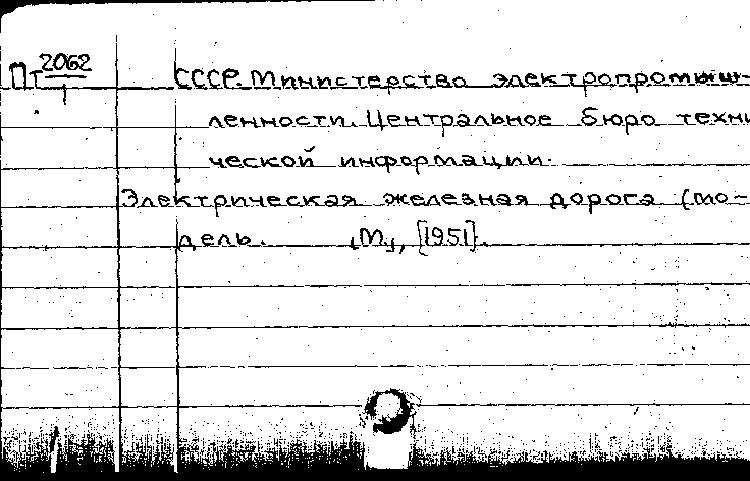 Пт 2062 СССР. Министерство электропромыш-
1
ленности. Центральное бюро техни
ческой информации.
Электрическая железная дорога (мо-
дель. [М.], [1951].